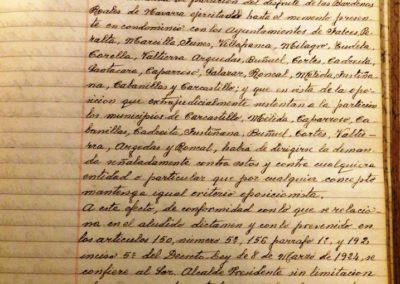 de partición del disfrute de las Bardenas
Reales de Navarra ejercitado hasta el momento presen-
te en condominio con los Ayuntamientos de Falces Pe-
ralta, Marcilla, Funes, Villafranca, Milagro, Tudela
Corella, Valtierra Arguedas, Buñuel, Cortes, Cadreita,
Santacara, Caparroso, Salazar, Roncal, Mélida, Fustiña-
na, Cabanillas y Carcastillo; y que en vista de la opo-
sición que extrajudicialmente sustentan a la partición
los municipios de Carcastillo, Mélida, Caparroso, Ca-
banillas, Cadreita, Fustiñana, Buñuel, Cortes, Valtie-
rra, Argedas y Roncal, habrá de dirigirse la deman-
da señaladamente contra estos y contra cualquiera
entidad o particular que por cualquier concepto
mantenga igual criterio oposicionista.
A este efecto, de conformidad con lo que se relacio-
na en el aludido dictamen y con lo prevenido en
los artículos 150, número 5º, 156 párrafo 1º, y 192
inciso 5º del Decreto Ley de 8 de Marzo de 1924, se
confiere al Sor. Alcalde Presidente sin limitacion